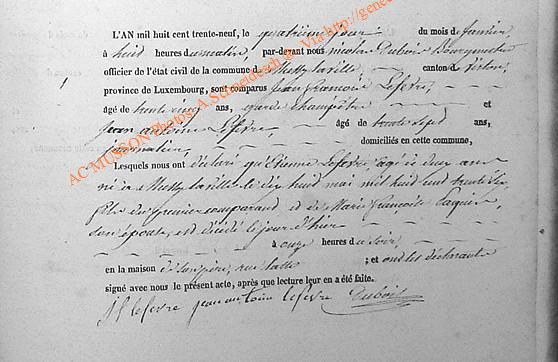 L'AN mil huit cent trente-neuf, le quatrième jour du mois de Janvier
à huit heures du matin, par-devant nous Nicolas Dubois Bourgmestre
officier de l'état civil de la commune de Mussy-la-ville, canton de Virton,
province de Luxembourg, sont comparus Jean François Lefevre,
âgé de trente cinq ans, garde champêtre et
Jean antoine Lefevre, âgé de trente sept ans,
journalier, domiciliés en cette commune,
Lesquels nous ont déclaré qu'Etienne Lefevre âgé de deux ans
né à Mussy-laville le dix huit mai mil huit cent trente six
fils du premier comparant et de Marie Françoise
son épouse, est décédé le jour d'hier
à onze heures du soir,
en la maison de son père, rue ; et ont les déclarants
signé avec nous le présent acte, après que lecture leur en a été faite.
J f lefevre jean antoine lefevre Dubois
AC MUSSON Photos A.Schneidesch © Via http://gene